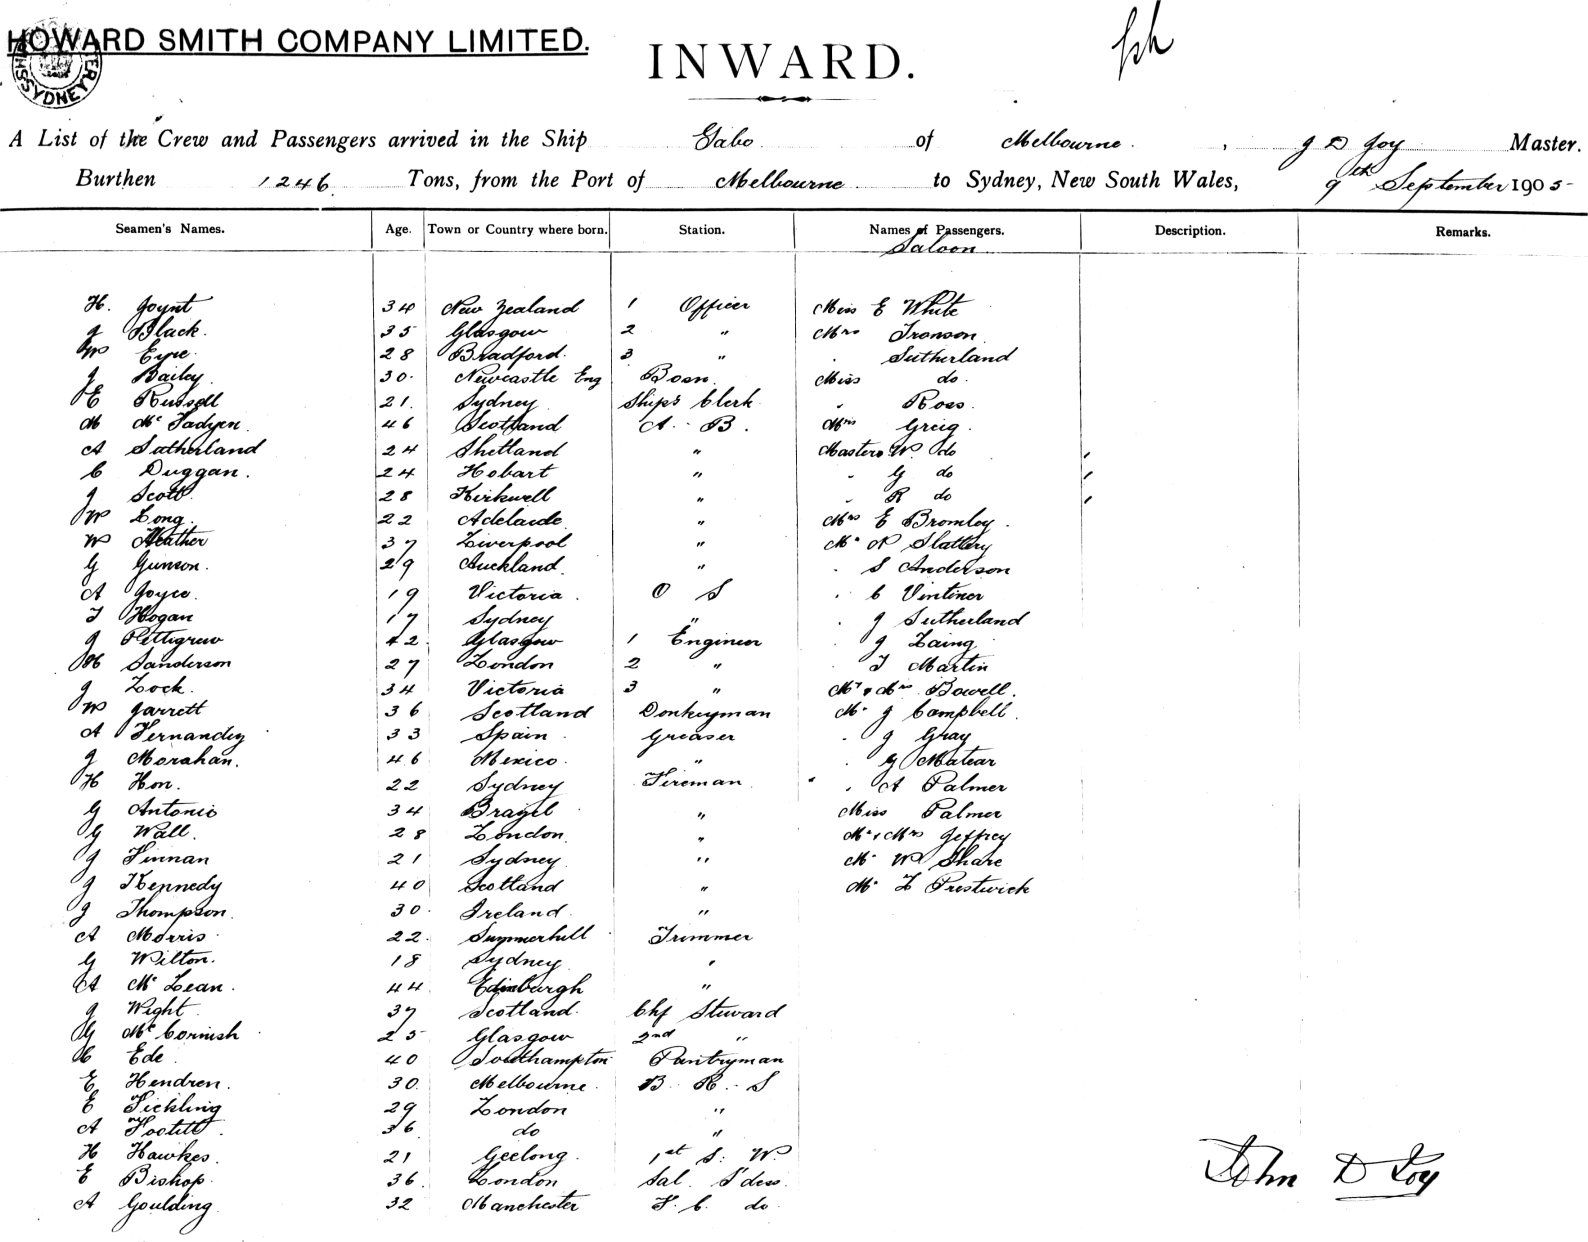 HOWARD SMITH COMPANY LIMITED.
SYDNEY
INWARD.
A List of the Crew and Passengers arrived in the Ship Gabo of Melbourne, J D Joy Master.
Burthen 1246 Tons, from the Port of Melbourne to Sydney, New South Wales, 9th September 1905
Seamen's Names. Age. Town or Country where born. Station. Names of Passengers. Description. Remarks.
Saloon
H. Joynt 34 New Zealand 1 Officer Miss E White
J Black. 35 Glasgow 2 " Mrs Tronson
W Eyre 28 Bradford. 3 " . Sutherland
J Bailey 30. Newcastle Eng Bosn. Miss do.
E Russell 21. Sydney Ship's Clerk " Ross
M McFadyen 46 Scotland A. B. Mrs Greig
A Sutherland 24 Shetland " Masters W. do
C Duggan. 24 Hobart " " G do
J Scott 28 Kirkwell " " R do
W Long. 22 Adelaide " Mrs E Bromley.
W Heather 37 Liverpool " Mr N Slattery
G Gunson. 29 Auckland " . S Anderson
A Joyce. 19 Victoria. O S . C Vintiner
T Hogan 17 Sydney " . J Sutherland
J Pettigrew 42 Glasgow 1 Engineer . J Laing
Sanderson 27 London 2 " . T Martin
J Lock. 34 Victoria 3 " Mr & Mrs Bowell.
W Jarrett 36 Scotland Donkeyman Mr J Campbell.
A Fernandez 33 Spain Greaser . J Gray
J Morahan. 46 Mexico. " . G Matear
H Hon. 22 Sydney Fireman . A Palmer
G Antonio 34 Brazil " Miss Palmer
G Wall. 28 London " Mr & Mrs Jeffrey
J Finnan 21 Sydney " Mr W Share
J Kennedy 40 Scotland " Mr L Prestwick
J Thompson. 30. Ireland. "
A Morris 22. Summerhill Trimmer
G Wilton. 18 Sydney "
A McLean. 44 Edinburgh "
J Wight 37 Scotland. Chf Steward
G McCornish 25 Glasgow 2nd "
C Ede 40 Southampton Pantryman
E Hendren. 30. Melbourne. B. R. S
E Fickling 29 London "
A Footitt. 36 do "
H Hawkes. 21 Geelong. 1st S. W.
E Bishop. 36. London Sal. S'dess.
A Goulding 32 Manchester F. C. do
John D Joy